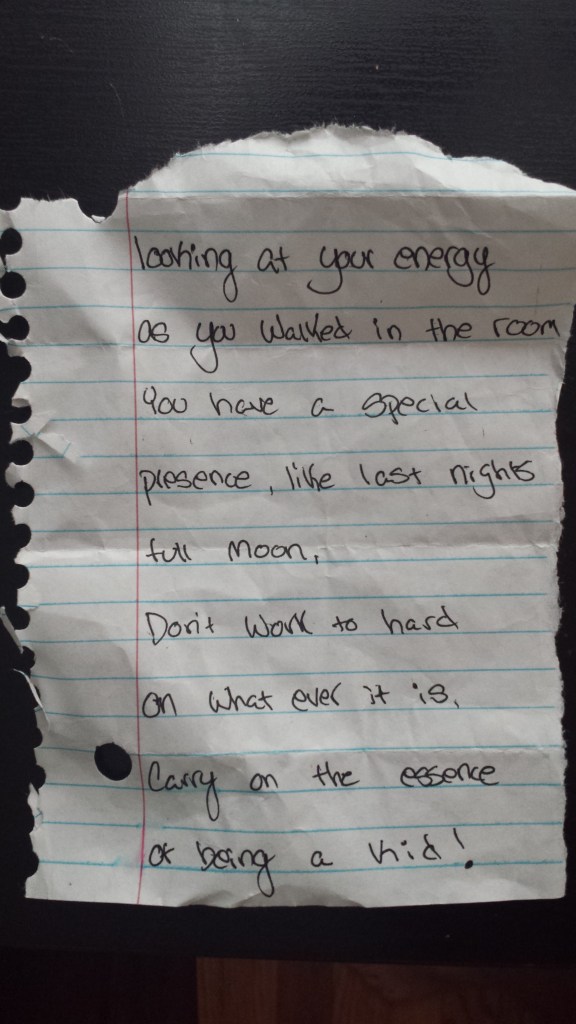 looking at your energy
as you walked in the room
You have a special
presence, like last nights
full moon,
Don't work to hard
on what ever it is,
Carry on the essence
of being a kid!